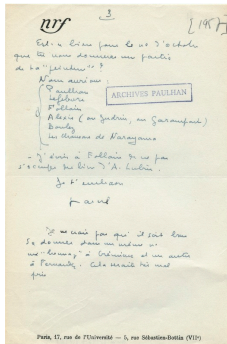 nrf
3
[195
Est-ce bien pour le no d'octobre
que tu nous donnes une partie
de ta "peinture" ?
Nous aurions
Paulhan
Lefebvre
Follain
Alexis (ou Judrin, ou Garampon)
Boulez
Les chansons de Narayama
ARCHIVES PAULHAN
J'écris à Follain de ne pas
s'occuper du livre d'A. Lubin.
Je t'embrasse
Marcel
Je ne crois pas qu'il soit bon
de donner dans un même no
un "hommage" à Crémieux et un autre
à Fernandez. Cela serait très mal
pris
Paris, 17, rue de l'Université — 5, rue Sébastien-Bottin (VIIe)